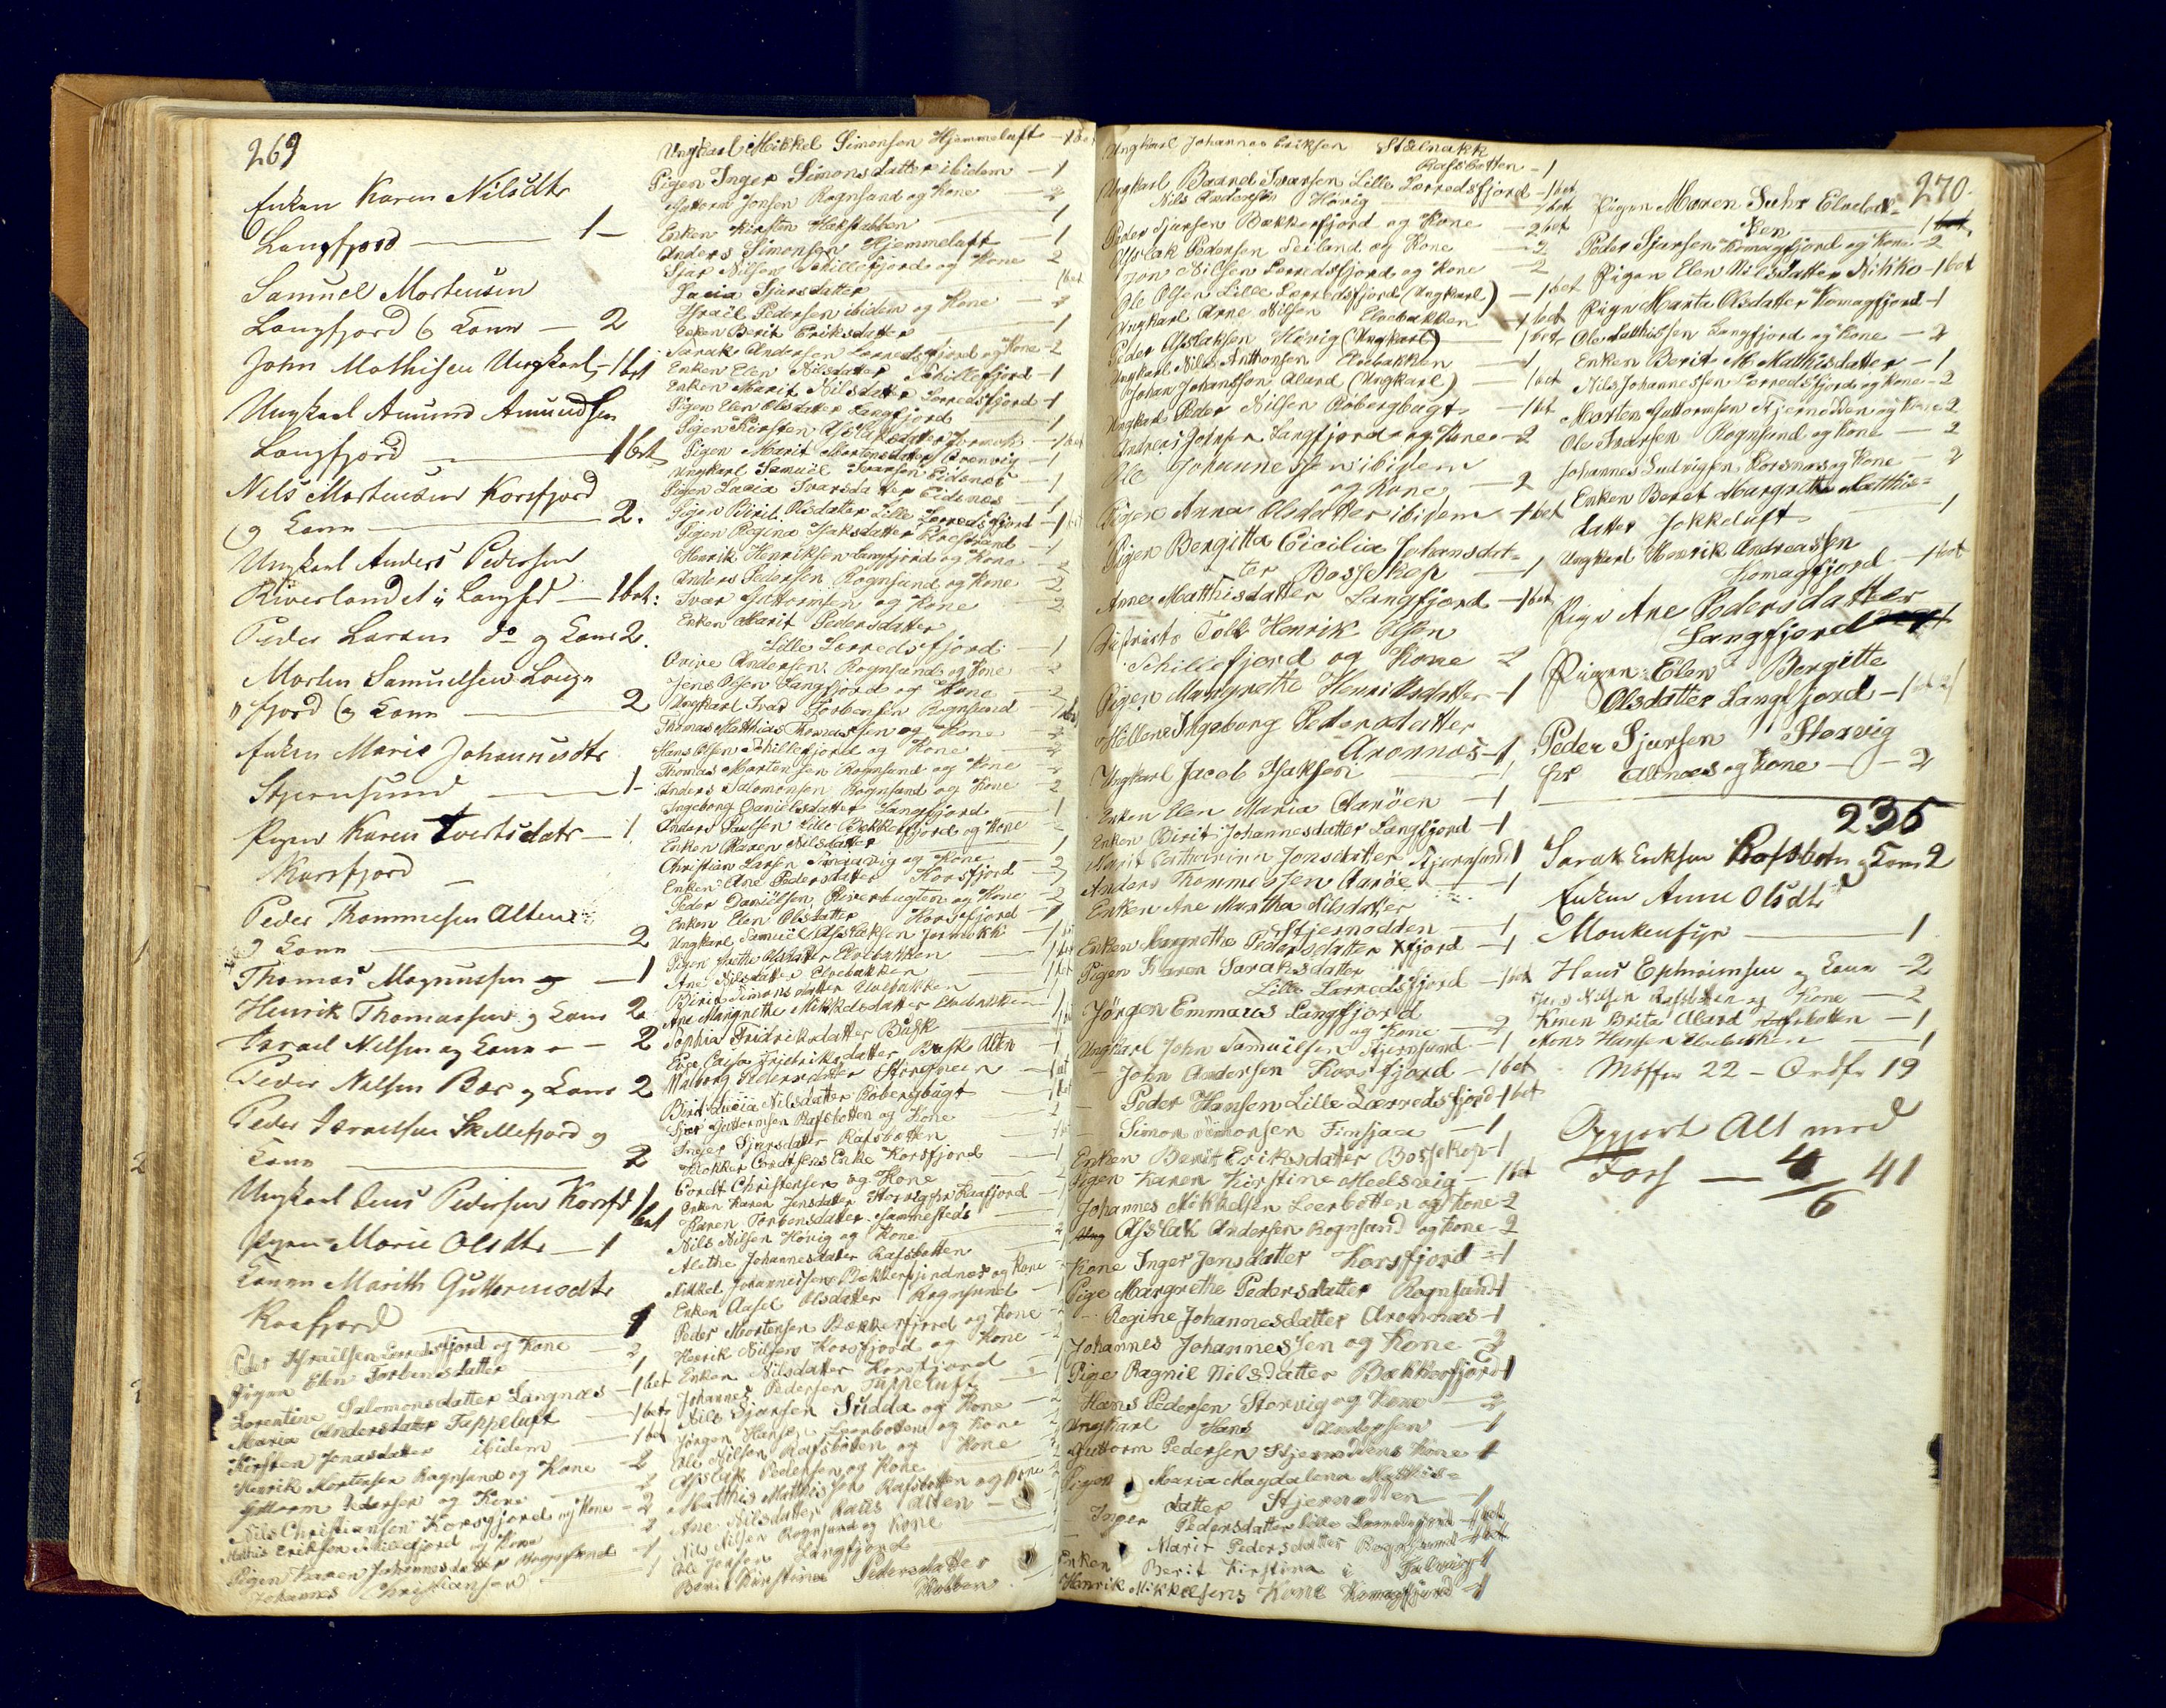 269
Enken Karen Nilsdtr
Langfjord — 1 —
Samuel Mortensen
Langfjord og Kone — 2
John Mathisen Ungkarl — 1 bet
Ungkarl Amund Amundsen
Langfjord — 1 bet
Nils Mortensen Korsfjord
og Kone — 2.
Ungkarl Anders Pedersen
Riverlandet i Langfd — 1 bet:
Peder Larsen do og Kone 2.
Morten Samuelsen Lang
" fjord og Kone — 2
Enken Marie Johannesdtr
Stjernsund — 1 -
Pigen Karen Ivertsdatr — 1
Korsfjord
Peder Thommesen Alten
og Kone — 2
Thomas Magnussen og — 1
Henrik Thomassen og Kone 2
Israel Nilsen og Kone — 2
Peder Nilsen Bær og Kone 2
Peder Israelsen Skillefjord og
Kone — 2
Ungkarl Jens Pedersen Korsfd 1 bet
Pigen Marie Olsdtr — 1
Konen Marith Guttormsdtr
Kaafjord — 1
Peder Israelsen Lerredsfjord og Kone — 2
Pigen Elen Torbensdatter — 1
Lorentine Salomonsdatter Langnæs — 1 bet
Maria Andersdatter Tappeluft — 1 bet
Kirsten Jonasdatter ibidem — 1 bet
Henrik Mortensen Rognsund og Kone — 2
Guttorm Pedersen og Kone — 2
Nils Christiansen Korsfjord og Kone — 2
Mathis Eriksen Skillefjord og Kone — 2
Pigen Karen Johannesdatter Rognsund — 1
Johannes Christiansen — 1
Ungkarl Mikkel Simonsen Hjemmeluft — 1 bet
Pigen Inger Simonsdatter ibidem — 1
Guttorm Jonsen Rognsund og Kone — 2
Enken Kirsten Hakstabben — 1
Anders Simonsen Hjemmeluft — 1
Sjar Nilsen Skillefjord og Kone — 2
Lucia Sjursdatter — 1 bet
Israël Pedersen ibidem og Kone — 2
Enken Berit Eriksdatter — 1
Sarak Andersen Lerredsfjord og Kone — 2
Enken Elen Nilsdatter Schillefjord — 1
Enken Marit Nilsdatter Lerredsfjord — 1
Pigen Elen Olsdatter Langfjord — 1
Pigen Kirsten Aslaksdatter Jormok — 1 bet
Pigen Marit Mortensdatter Qvenvig — 1
Ungkarl Samuël Ivarsen Eidenes — 1
Pigen Lucia Ivarsdatter Eidenæs — 1
Pigen Birit Olsdatter Lille Lerredsfjord — 1
Pigen Regina Isaksdatter Elvestrand — 1
Henrik Henriksen Langfjord og Kone — 2
Anders Pedersen Rognsund og Kone — 2
Ivar Guttormsen og Kone — 2
Enken Marit Pedersdatter
Lille Lerredsfjord — 1
Qvive Andersen Rognsund og Kone — 2
Jens Olsen Langfjord og Kone — 2
Ungkarl Ivar Torbensen Rognsund — 1 bet
Thomas Matthias Thomassen og Kone — 2
Hans Olsen Schillefjord og Kone — 2
Thomas Mortensen Rognsund og Kone — 2
Anders Salomonsen Rognsund og Kone — 2
Ingeborg Danielsdatter Langfjord — 1
Anders Paulsen Lille Bekkerfjord og Kone — 2
Enken Karen Nilsdatter — 1
Christian Larsen og Kone — 2
Enken Ane Pedersdatter Korsfjord — 1
Peder Daniëlsen Riverbugten og Kone — 2
Enken Elen Olsdatter Korsfjord — 1
Ungkarl Samuël Aslaksen Jormokki — 1
Pigen Grethe Olsdatter Elvebakken — 1 bet
Ane Nilsdatter Elvebakken — 1 bet
Birit Simonsdatter Elvebakken
Ane Margrethe Mikkelsdatter Elvebakken — 1
Sophia Fridriksdatter Busk — 1
Eva Caisa Fridriksdatter Busk Altn — 1
Valborg Pedersdatter Storsteen — 1 bet
Birit Lucia Nilsdatter Robergbugt — 1 bet
Sjur Guttormsen Rafsbotten og Kone — 2
Inger Sjursdatter Rafsbotten — 1
Klokker Cordtsens Enke Korsfjord — 1
Cordt Christensen og Kone — 2
Enken Karen Jensdatter Storvig for Kaafjord — 1
Karen Torbensdatter sammesteds — 1
Nils Nilsen Hovig og Kone — 2
Alethe Johannesdatter Rafsbotten — 1
Mikkel Johannessen Bekkerfjordnes og Kone — 2
Enken Aasel Olsdatter Rognsund — 1
Peder Mortensen Bekkerfjord og Kone — 2
Henrik Nilsen Korsfjord og Kone — 2
Enken Nilsdatter Korsfjord — 1
Johannes Pedersen Tappeluft — 1
Nils Sjursen Sudda og Kone — 2
Jørgen Hansen Leerbotten og Kone — 2
Ole Nilsen Rafsbotten og Kone — 2
Aslak Pedersen og Kone — 2
Matthis Matthisen Rafsbotten og Kone — 2
Ane Nilsdatter Raus Alten — 1
Nils Nilsen Rognsund og Kone
Ole Jonsen Langfjord
Berit Kirstine Pedersdatter
Stabben — 1
Ungkarl Johannes Eriksen Stælnakk
Rafsbotten — 1
Ungkarl Baard Ivarsen Lille Lerredsfjord — 1 bet
Nils Andersen Hovig — 1 bet
Peder Sjursen Bækkerfjord og Kone — 2 bet
Aslak Pedersen Seiland og Kone — 2
Jon Nilsen Lerredsfjord og Kone — 2
Ole Olsen Lille Lerredsfjord (Ungkarl) — 1 bet
Ungkarl Arne Nilsen Elvebakken — 1 bet
Peder Aslaksen Hovig (Ungkarl) — 1 bet
Ungkarl Nils Anthonsen Elvebakken — 1
Johan Johansson Alard (Ungkarl) — 1 bet
Ungkarl Peder Nilsen Robergbugt — 1 bet
Andreas Johnsen Langfjord og Kone — 2
Ole Johannessen ibidem
og Kone — 2
Pigen Anna Olsdatter ibidem — 1 bet
Pigen Bergitta Cicilia Johansdat=
ter Bossekop — 1
Anne Matthisdatter Langfjord — 1 bet
Distrikts Tolk Henrik Olsen
Schillefjord og Kone — 2
Pigen Margrethe Henriksdatter — 1
Hellene Ingeborg Pedersdatter
Aronnæs — 1
Ungkarl Jacob Isaksen — 1
Enken Elen Maria Aarøen — 1
Enken Birit Johannesdatter Langfjord — 1
Marit Catharina Jonsdatter Stjernsund 1
Anders Thommessen Aarøe — 1
Enken Ane Martha Nilsdatter
Stjernodden — 1
Enken Margrethe Pedersdatter Kfjord — 1
Pigen Karen Saraksdatter
Lille Lerredsfjord — 1 bet
Jörgen Emmaus Langfjord
og Kone — 2
Ungkarl John Samuelsen Stjernsund — 1
— John Andersen Korsfjord — 1 bet
— Peder Hansen Lille Lærredsfjord — 1 bet
— Simon Simonsen Timsjaa — 1
Enken Berit Eriksdatter Bossekop — 1
Pigen Karen Kirstine Meelsvig — 1 bet
Johannes Mikkelsen Leerbotten og Kone — 2
Aslak Andersen Rognsund og Kone — 2
Kone Inger Jensdatter Korsfjord — 1
Pige Margrethe Pedersdatter Rognsund 1
— Regine Johannesdatter Aronnæs — 1
Johannes Johannessen og Kone — 2
Pige Ragnil Nilsdatter Bækkerfjord 1
Hans Pedersen Storvig og Kone — 2
Ungkarl Hans Andersen — 1
Guttorm Pedersen Stjernoddens Kone 1
Pigen Maria Magdalena Matthis=
datter Stjernodden — 1
Inger Pedersdatter Lille Lerredsfjord — 1 bet
— Marit Pedersdatter Rognsund — 1 bet
Enken Berit Kirstina i Talvig 1
Henrik Mikkelsens Kone Komagfjord — 1
270.
Pigen Maren Suhr Elvebak=
ken — 1 bet.
Peder Sjursen Komagfjord og Kone — 2
Pigen Elen Nilsdatter Nikko — 1 bet
Pigen Marta Olsdatter Komagfjord — 1
Ole Matthissen Langfjord og Kone — 2
Enken Berit M. Matthisdatter — 1
Nils Johannessen Lerredsfjord og Kone — 2
Morten Guttormsen Stjernodden og Kone 2
Ole Ivarsen Rognsund og Kone — 2
Johannes Ludvigsen Korsnæs og Kone — 2
Enken Beret Margrethe Matthis=
datter Jokkeluft — 1
Ungkarl Henrik Andreassen
Komagfjord — 1 bet
Pige Ane Pedersdatter
Langfjord
Pigen Elen Bergitte
Olsdatter Langfjord — 1 bet
Peder Sjursen Storvig
for Altnæs og Kone — 2
235
Sarak Eriksen Rafsbotn og Kone 2
Enken Anne Olsdtr
Monkenfyr — 1
Hans Ephraimsen og Kone — 2
Jens Nilsen Rafsbotten og Kone — 2
Konen Brita Alard Rafsbotten — 1
Mons Hansen Elvebakken — 1
Möffer 22 — Ordfr 19
Opgjort Alt med
Fors — 4 41
6